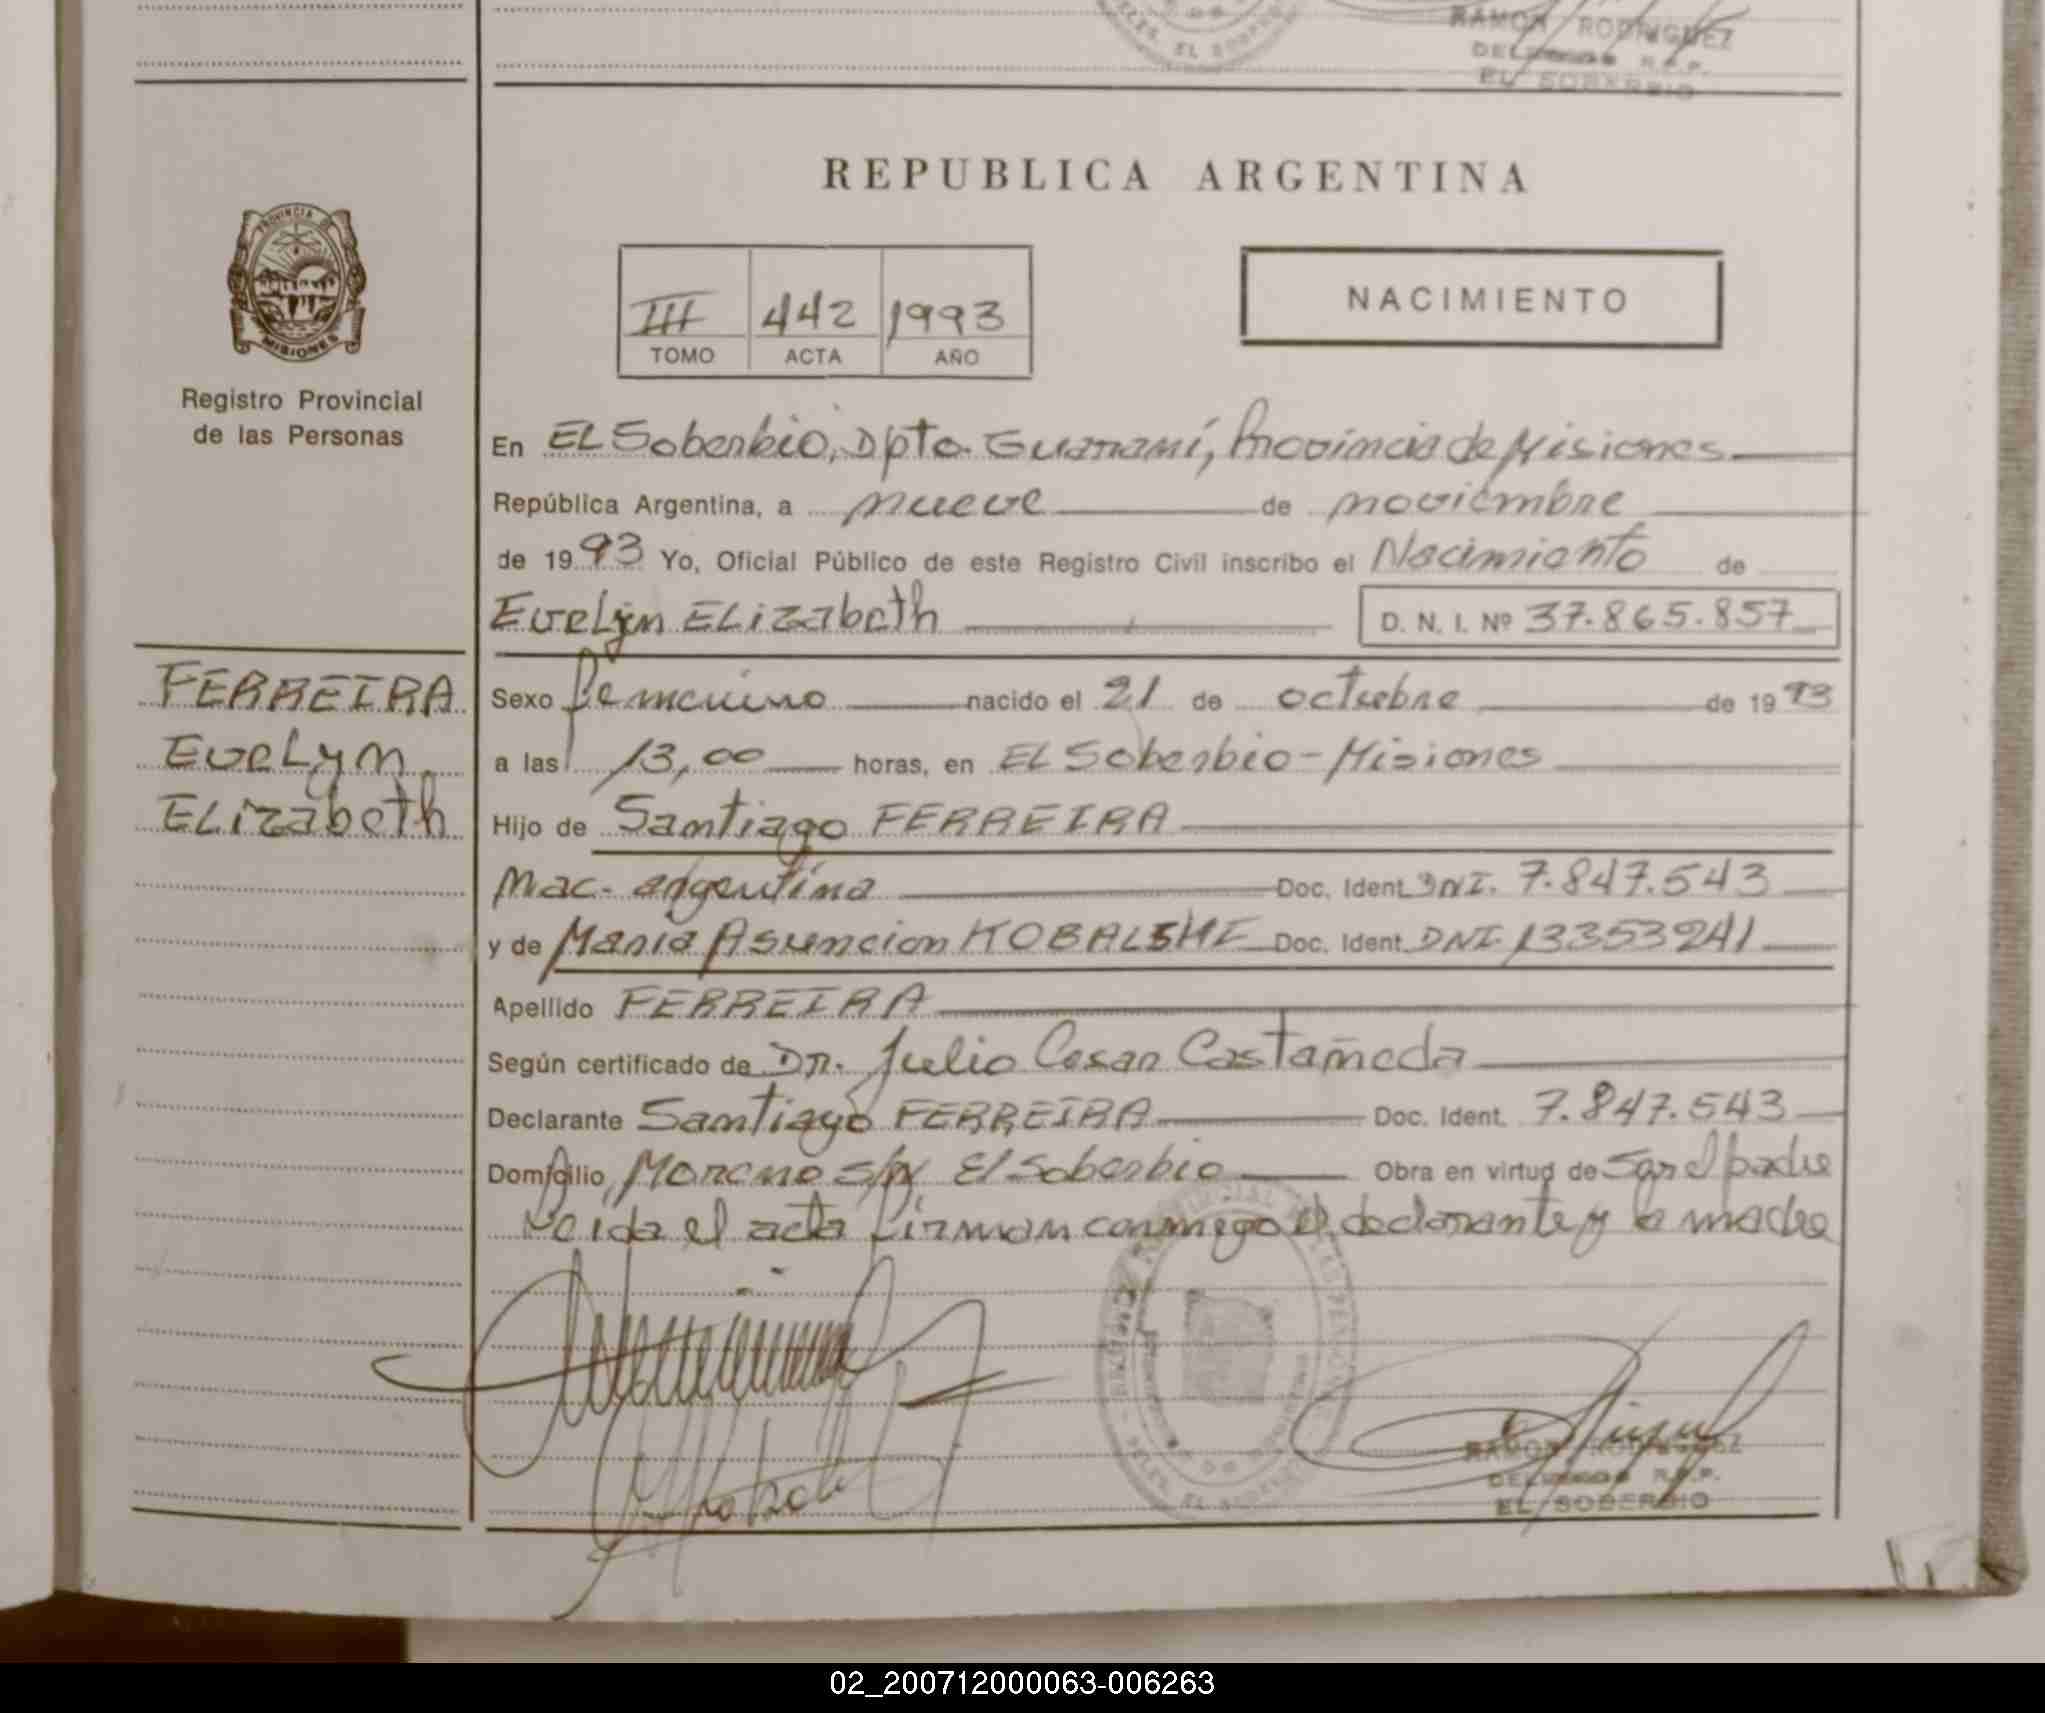 RAMON RODRIGUEZ
R.P.P.
EL SOBERBIO
REPUBLICA ARGENTINA
PROVINCIA DE
MISIONES
Registro Provincial
de las Personas
III 442 1993
TOMO ACTA AÑO
NACIMIENTO
En EL Soberbio, Dpto. Guaraní, Provincia de Misiones
República Argentina, a nueve de noviembre
de 1993 Yo, Oficial Público de este Registro Civil inscribo el Nacimiento de
Evelyn ELizabeth D. N. I. Nº 37.865.857
FERREIRA
Evelyn
ELizabeth
Sexo femenino nacido el 21 de octubre de 1993
a las 13,00 horas, en EL Soberbio - Misiones
Hijo de Santiago FERREIRA
Nac. argentina Doc. Ident. DNI. 7.847.543
y de Maria Asuncion Doc. Ident. DNI. 13353241
Apellido FERREIRA
Según certificado de Dr. Julio Cesar Castañeda
Declarante Santiago FERREIRA Doc. Ident. 7.847.543
Domicilio Moreno s/n El Soberbio Obra en virtud de ser el padre
Leida el acta firman conmigo el declarante y la madre
RAMON RODRIGUEZ
R.P.P.
EL SOBERBIO
02_200712000063-006263